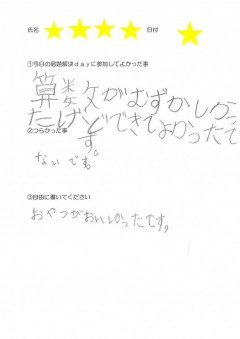 氏名
日付
①今日の宿題解決dayに参加してよかった事
算数がむずかしかっ
たけどできてよかったで
す。
②つらかった事
ないです。
③自由に書いてください
おやつがおいしかったです。